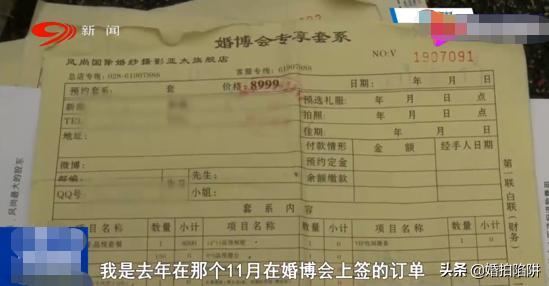 新闻
婚博会专享套系
风尚国际婚纱摄影亚太旗舰店
NO:V 1907091
总店专线:028-61907888 客服专线:61907888
预约套系: 套 价格:8999 日期: 年 月 日
预选礼服: 年 月 日 点
TEL 拍照: 年 月 日 点
地址: 佳期: 年 月 日
付款情形 金额 经手人日期
预约定金
微博: 余额缴款
邮箱: 先生:
QQ号: 小姐:
套系内容
项目名称 数量 小计 项目名称 数量 小计 项目名称 数量 小计
第一联 白联(财务)
风尚最大的股东
我是去年在那个11月在婚博会上签的订单
头条 @婚拍陷阱